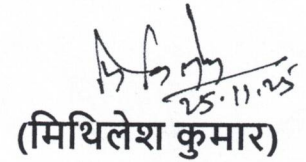 25.11.25
(मिथिलेश कुमार)